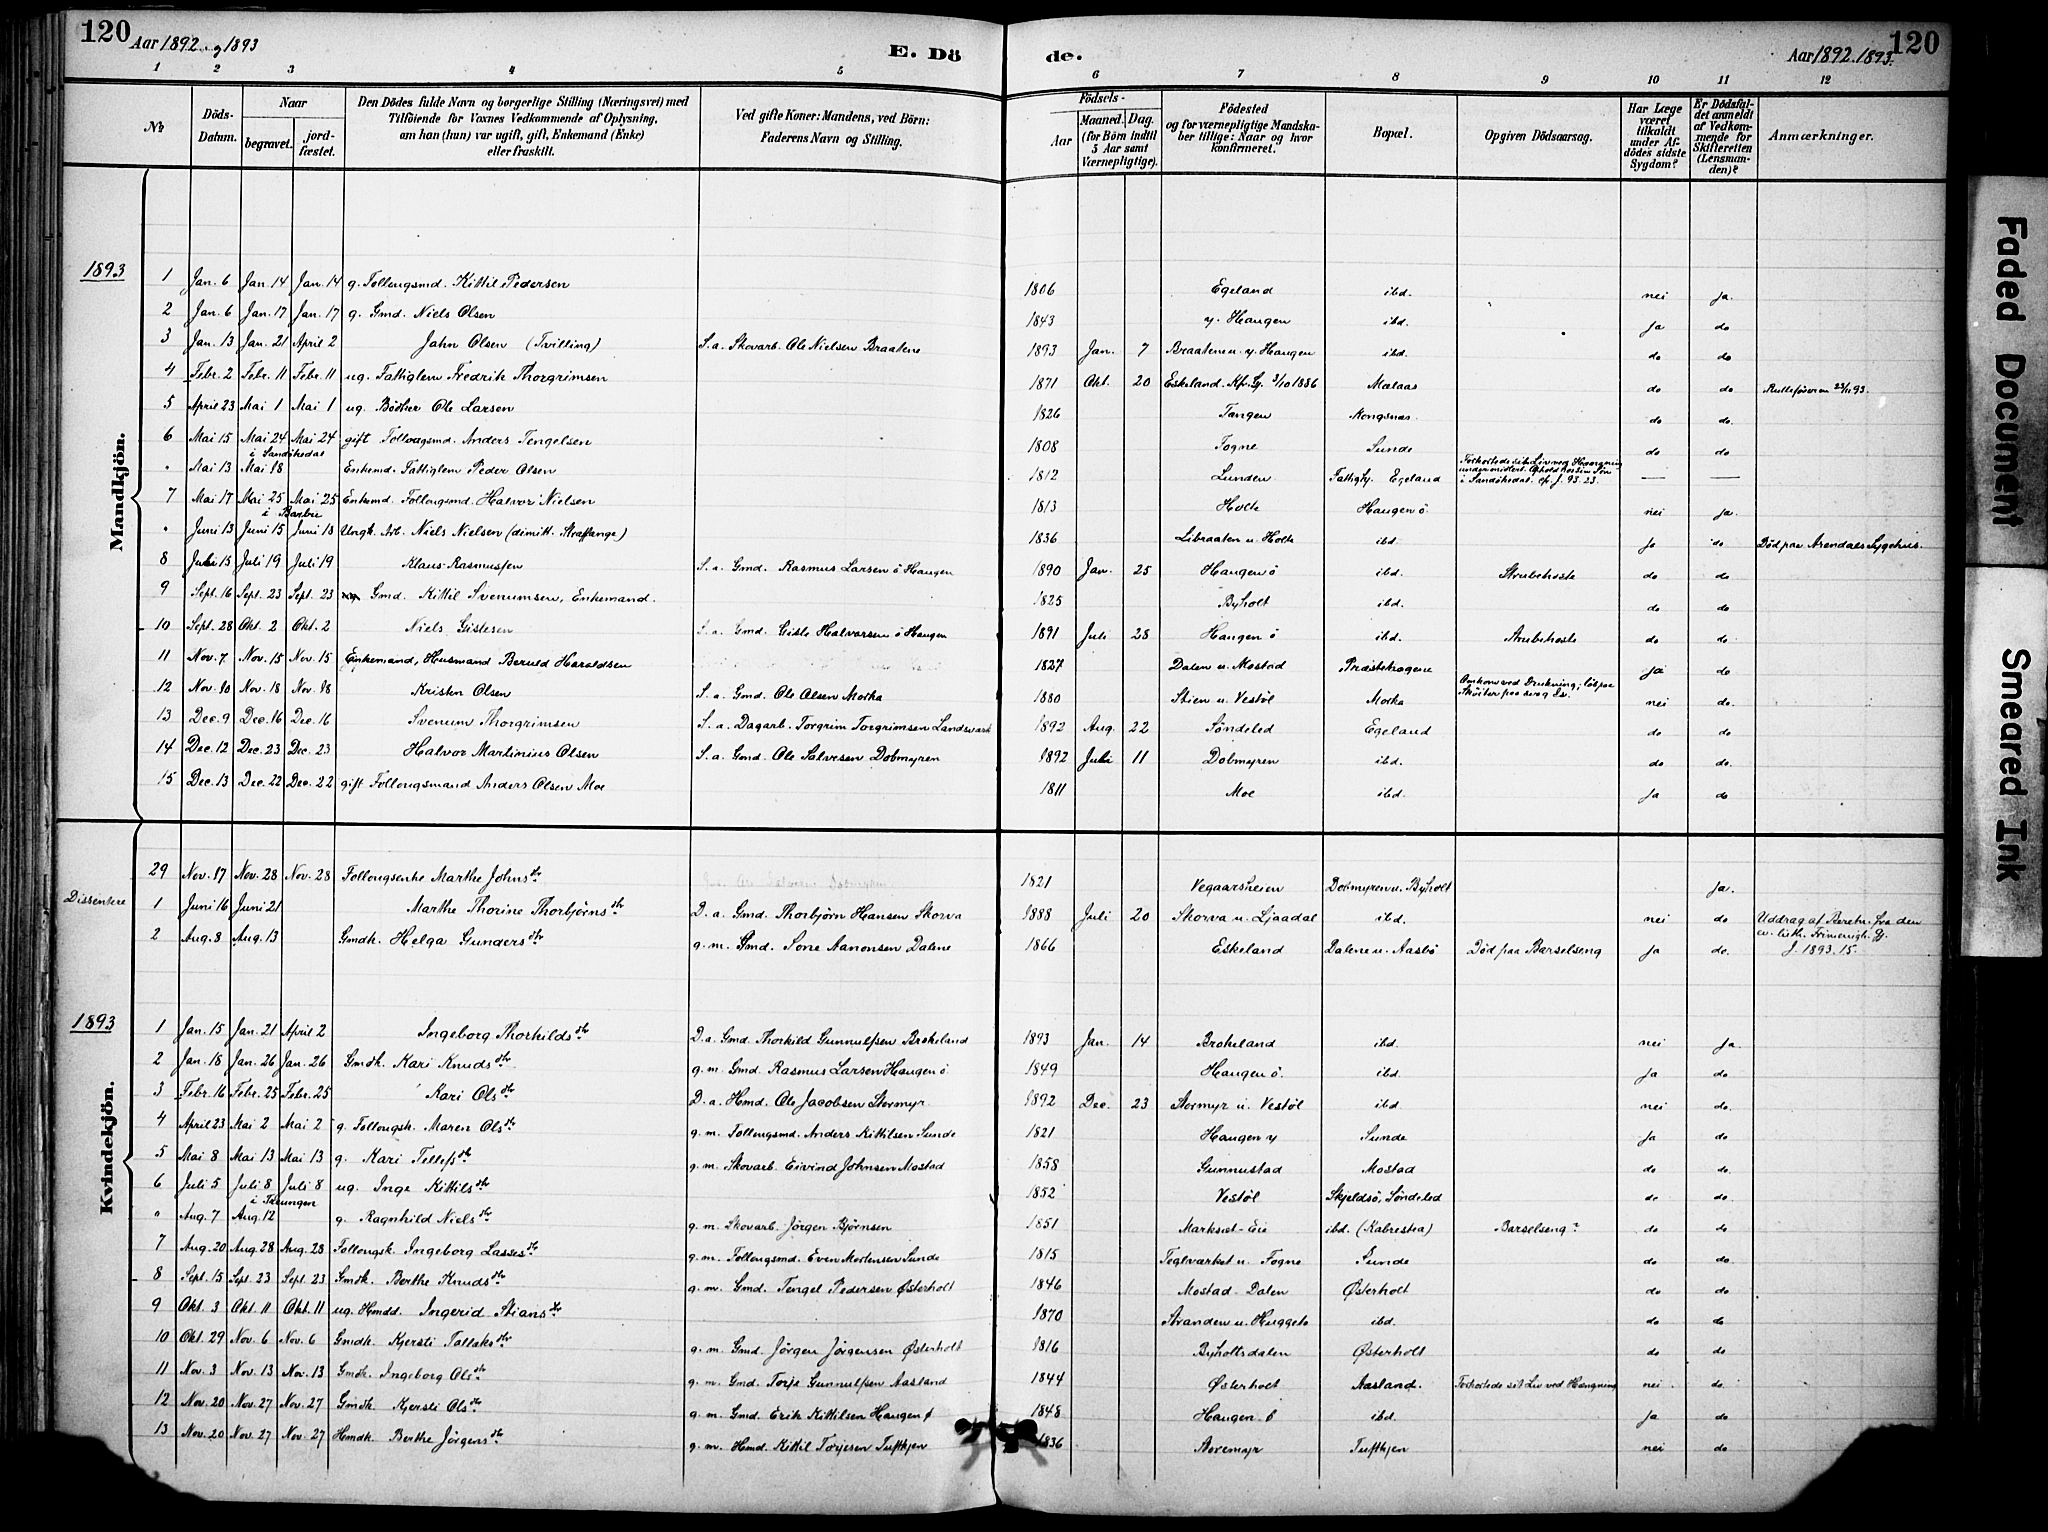 120 Aar 1892 og 1893 E. Dö de. Aar 1892. 1893. 120
1 2 3 4 5 6 7 8 9 10 11 12
No
Döds-Datum.
Naar begravet. jordfæstet.
Den Dödes fulde Navn og borgerlige Stilling (Næringsvei) med
Tilföiende for Voxnes Vedkommende af Oplysning,
om han (hun) var ugift, gift, Enkemand (Enke)
eller fraskilt.
Ved gifte Koner: Mandens, ved Börn:
Faderens Navn og Stilling.
Födsels-
Aar Maaned. Dag.
(for Börn indtil
5 Aar samt
Værnepligtige).
Födested
og for værnepligtige Mandska-
ber tillige: Naar og hvor
konfirmeret.
Bopæl.
Opgiven Dödsaarsag.
Har Læge
været
tilkaldt
under Af-
dödes sidste
Sygdom?
Er Dödsfal-
det anmeldt
af Vedkom-
mende for
Skifteretten
(Lensman-
den)?
Anmærkninger.
Mandkjön.
1893
1 Jan. 6 Jan. 14 Jan. 14 g. Follougsmd. Kittil Pedersen 1806 Egeland ibd. nei ja.
2 Jan. 6 Jan. 17 Jan. 17 g. Gmd. Niels Olsen 1843 y. Haugen ibd. ja do
3 Jan. 13 Jan. 21 April 2 Jahn Olsen (Tvilling) S. a. Skovarb. Ole Nielsen Braatene 1893 Jan. 7 Braatene u. y. Haugen ibd. do do
4 Febr. 2 Febr. 11 Febr. 11 ug. Fattiglem Fredrik Thorgrimsen 1871 Okt. 20 Eskeland. Kfr. Gj. 3/10 1886 Mælaas do do Rulleføreren 23/11 93.
5 April 23 Mai 1 Mai 1 ug. Bödker Ole Larsen 1826 Tangen Kongsnæs do do.
6 Mai 15 Mai 24 Mai 24 gift Follougsmd. Anders Tengelsen 1808 Fogne Sunde do do
i Sandökedal
" Mai 13 Mai 18 Enkemd. Fattiglem Peder Olsen 1812 Lunden Fattigly. Egeland Forkortede sit Liv ved Hængning
under midlert. Ophold hos sin Søn
i Sandökedal. cf. J. 93. 23. — —
7 Mai 17 Mai 25 Mai 25 Enkemd. Follougsmd. Halvor Nielsen 1813 Holte Haugen ö nei ja.
i Barbu
" Juni 13 Juni 15 Juni 18 Ungk. Arb. Niels Nielsen (dimitt. Straffange) 1836 Libraaten u. Holte ibd. ja do Död paa Arendals Sygehus.
8 Juli 15 Juli 19 Juli 19 Klaus Rasmussen S. a. Gmd. Rasmus Larsen ö Haugen 1890 Jan. 25 Haugen ö ibd. Strubehoste do do
9 Sept. 16 Sept. 23 Sept. 23 Gmd. Kittil Svenumsen, Enkemand. 1825 Byholt ibd. do do
10 Sept. 28 Okt. 2 Okt. 2 Niels Gislesen S. a. Gmd. Gisle Halvorsen ö Haugen 1891 Juli 28 Haugen ö ibd. Strubehoste do do
11 Nov. 7 Nov. 15 Nov. 15 Enkemand, Husmand Beruld Haroldsen 1827 Dalen u. Mostad Præstehagene ja do
12 Nov. 10 Nov. 18 Nov. 18 Kristen Olsen S. a. Gmd. Ole Olsen Morka 1880 Stien u. Vestöl Morka Omkom ved Drukning; löb paa
Sköiter paa svag Is. nei do.
13 Dec. 9 Dec. 16 Dec. 16 Svenum Thorgrimsen S. a. Dagarb. Torgrim Torgrimsen Landsværk 1892 Aug. 22 Söndeled Egeland do do.
14 Dec. 12 Dec. 23 Dec. 23 Halvor Martinius Olsen S. a. Gmd. Ole Salvesen Dobmyren 1892 Juli 11 Dobmyren ibd. do do.
15 Dec. 13 Dec. 22 Dec. 22 gift Follougsmand Anders Olsen Moe 1811 Moe ibd. ja do
Kvindekjön.
29 Nov. 17 Nov. 28 Nov. 28 Follougsenke Marthe Johnsdtr 1821 Vegaarsheien Dobmyren u. Byholt ja.
Dissentere
1 Juni 16 Juni 21 Marthe Thorine Thorbjörnsdtr D. a. Gmd. Thorbjörn Hansen Skorva 1888 Juli 20 Skorva u. Ljaadal ibd. nei do Uddrag af Beretn. fra den
ev. luth. Frimenigh. Gj.
J. 1893. 15.
2 Aug. 8 Aug. 13 Gmdk. Helga Gundersdtr g. m. Gmd. Sone Aanonsen Dalene 1866 Eskeland Dalene u. Aasbö Död paa Barselseng ja do.
1893
1 Jan. 15 Jan. 21 April 2 Ingeborg Thorkildsdtr D. a. Gmd. Thorkild Gunnulfsen Brokeland 1893 Jan. 14 Brokeland ibd. nei ja.
2 Jan. 18 Jan. 26 Jan. 26 Gmdk. Kari Knudsdtr g. m. Gmd. Rasmus Larsen Haugen ö 1849 Haugen ö. ibd. ja do
3 Febr. 16 Febr. 25 Febr. 25 Kari Olsdtr D. a. Hmd. Ole Jacobsen Stormyr 1892 Dec. 23 Stormyr u. Vestöl ibd. nei do.
4 April 23 Mai 2 Mai 2 g. Follougsk. Maren Olsdtr g. m. Follougsmd. Anders Kittilsen Sunde 1821 Haugen y Sunde ja do
5 Mai 8 Mai 13 Mai 13 g. Kari Tellefsdtr g. m. Skovarb. Eivind Johnsen Mostad 1858 Gunnustad Mostad do do.
6 Juli 5 Juli 8 Juli 8 ug. Inge Kittilsdtr 1852 Vestöl Skjeldsö, Söndeled do do
i Treungen
" Aug. 7 Aug. 12 g. Ragnhild Nielsdtr g. m. Skovarb. Jörgen Björnsen 1851 Marknæt-Eie ibd. (Kabrestea) Barselseng? do do
7 Aug. 20 Aug. 28 Aug. 28 Follougsk. Ingeborg Lassesdtr g. m. Follougsmd. Even Mortensen Sunde 1815 Teglværket u. Fogne Sunde do do.
8 Sept. 15 Sept. 23 Sept. 23 Gmdk. Berthe Knudsdtr g. m. Gmd. Tengel Pedersen Østerholt 1846 Mostad-Dalen Østerholt do do.
9 Okt. 3 Okt. 11 Okt. 11 ug. Hmdd. Ingerid Stiansdtr 1870 Stranden u. Huggets ibd. do do
10 Okt. 29 Nov. 6 Nov. 6 Gmdk. Kjersti Tallaksdtr g. m. Gmd. Jörgen Jörgensen Østerholt 1816 Byholtsdalen Østerholt do do
11 Nov. 3 Nov. 13 Nov. 13 Gmdk. Ingeborg Olsdtr g. m. Gmd. Torje Gunnulfsen Aasland 1844 Østerholt Aasland. Forkortede sit Liv ved Hængning nei do.
12 Nov. 20 Nov. 27 Nov. 27 Gmdk. Kjersti Olsdtr g. m. Gmd. Erik Kittilsen Haugen ö 1848 Haugen ö ibd. ja do
13 Nov. 20 Nov. 27 Nov. 27 Hmdk. Berthe Jörgensdtr g. m. Hmd. Kittil Torjesen Tuftkjen 1836 Storemyr Tuftkjen nei do
Faded Document
Smeared Ink